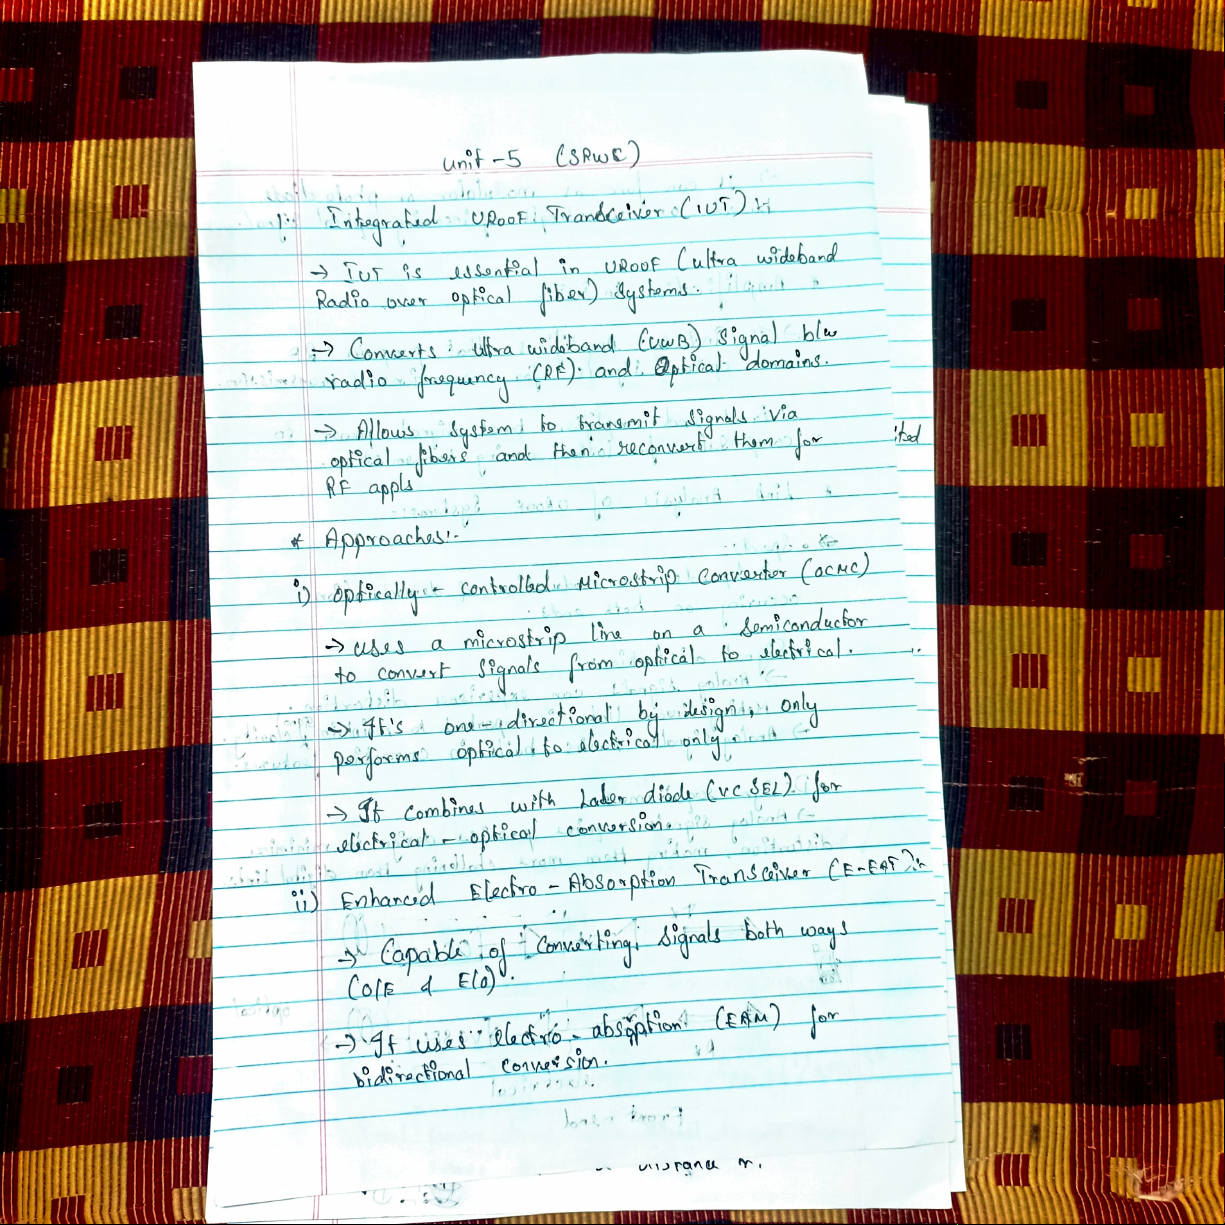 Unit-5 (SRWC)
1: Integrated UROOF Transceiver (IUT) :-
→ IUT is essential in UROOF (ultra wideband
Radio over optical fiber) systems.
→ Converts ultra wideband (UWB) signal b/w
radio frequency (RF) and Optical domains.
→ Allows system to transmit signals via
optical fibers and then reconvert them for
RF appls
* Approaches:-
i) optically - controlled Microstrip Converter (OCMC)
→ uses a microstrip line on a semiconductor
to convert signals from optical to electrical.
→ It's one-directional by design, only
performs optical to electrical only.
→ It combines with Laser diode (VCSEL) for
electrical - optical conversion.
ii) Enhanced Electro-Absorption Transceiver (E-EAT):-
→ Capable of Converting signals both ways
(O/E & E/O).
→ It uses electro-absorption (EAM) for
bidirectional conversion.
ited